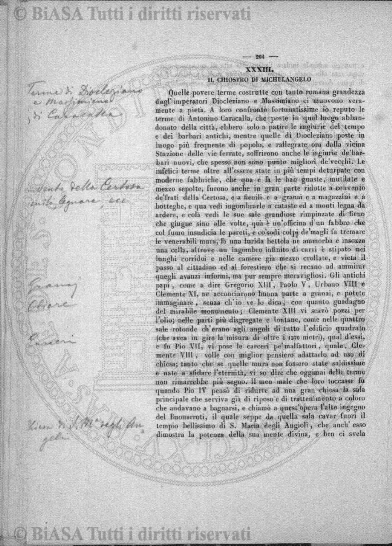 © BiASA Tutti i diritti riservati
— 264 —
XXXIII.
IL CHIOSTRO DI MICHELANGELO
Quelle povere terme costrutte con tanto romana grandezza
dagl'imperatori Diocleziano e Massimiano ci muovono vera-
mente a pietà. A loro confronto fortunatissime io reputo le
terme di Antonino Caracalla, che poste in quel luogo abban-
donato della città, ebbero solo a patire le ingiurie del tempo
e dei barbari antichi, mentre quelle di Diocleziano poste in
luogo più frequente di popolo, a rallegrate ora dalla vicina
Stazione delle vie ferrate, soffrirono anche le ingiurie de' bar-
bari nuovi, che spesso non sono punto migliori de' vecchi. Le
infelici terme oltre all'essere state in più tempi deturpate con
moderne fabbriche, che qua e là le han guaste, mutilate e
mezzo sepolte, furono anche in gran parte ridotte a convento
de' frati della Certosa, e a fienili e a granai e a magazzini e a
botteghe, e qua vedi ingombrarle a cataste ed a monti legna da
ardere, e colà vedi le sue sale grandiose rimpinzate di fieno
che giugne sino alle volte, quà è un'officina d'un fabbro che
col fumo insudicia le pareti, e co' sodi colpi de' magli fa tremar-
le venerabili mura, là una lurida bettola ne ammorba e insozza
una cella, altrove un ingombro infinito di carri è stipato nei
lunghi corridoi e nelle camere già mezzo crollate, e vieta il
passo al cittadino ed al forestiere che si recano ad ammirar
quegli avanzi informi, ma pur sempre maravigliosi. Gli antichi
papi, come a dire Gregorio XIII, Paolo V, Urbano VIII e
Clemente XI, ne acconciarono buona parte a granai, e potete
immaginare, senza ch'io ve lo dica, con quanto guadagno
del mirabile monumento; Clemente XIII vi scavò pozzi per
l'olio; nelle parti più disgregate e lontane, come nelle quattro
sale rotonde ch'erano agli angoli di tutto l'edificio quadrato
(che aveva in giro la misura di oltre a 1200 metri), qual d'essi,
e fu Pio VII, vi pose le carceri pe' malfattori, quale, Cle-
mente VIII, volle con miglior pensiero adattarle ad uso di
chiesa; tanto che se quelle mura non fossero state saldissime
e nate a sfidare l'eternità, vi so dire che oggimai delle terme
non rimarrebbe più segno. Il meno male che loro toccasse fu
quando Pio IV pensò di ridurre ad una gran chiesa la sala
principale che serviva già di riposo e di trattenimento a coloro
che andavano a bagnarsi, e chiamò a quest'opera l'alto ingegno
del Buonarroti, il quale seppe da quella sala cavar fuori il
tempio bellissimo di S. Maria degli Angioli, che anch'esso
dimostra la potenza della sua mente divina, e ben ci svela
Terme di Diocleziano
e Massimiano
di Caracalla
Convento della Certosa
Granaj
Carceri
Chiesa di S. Mª degli An-
geli
© BiASA Tutti i diritti riservati